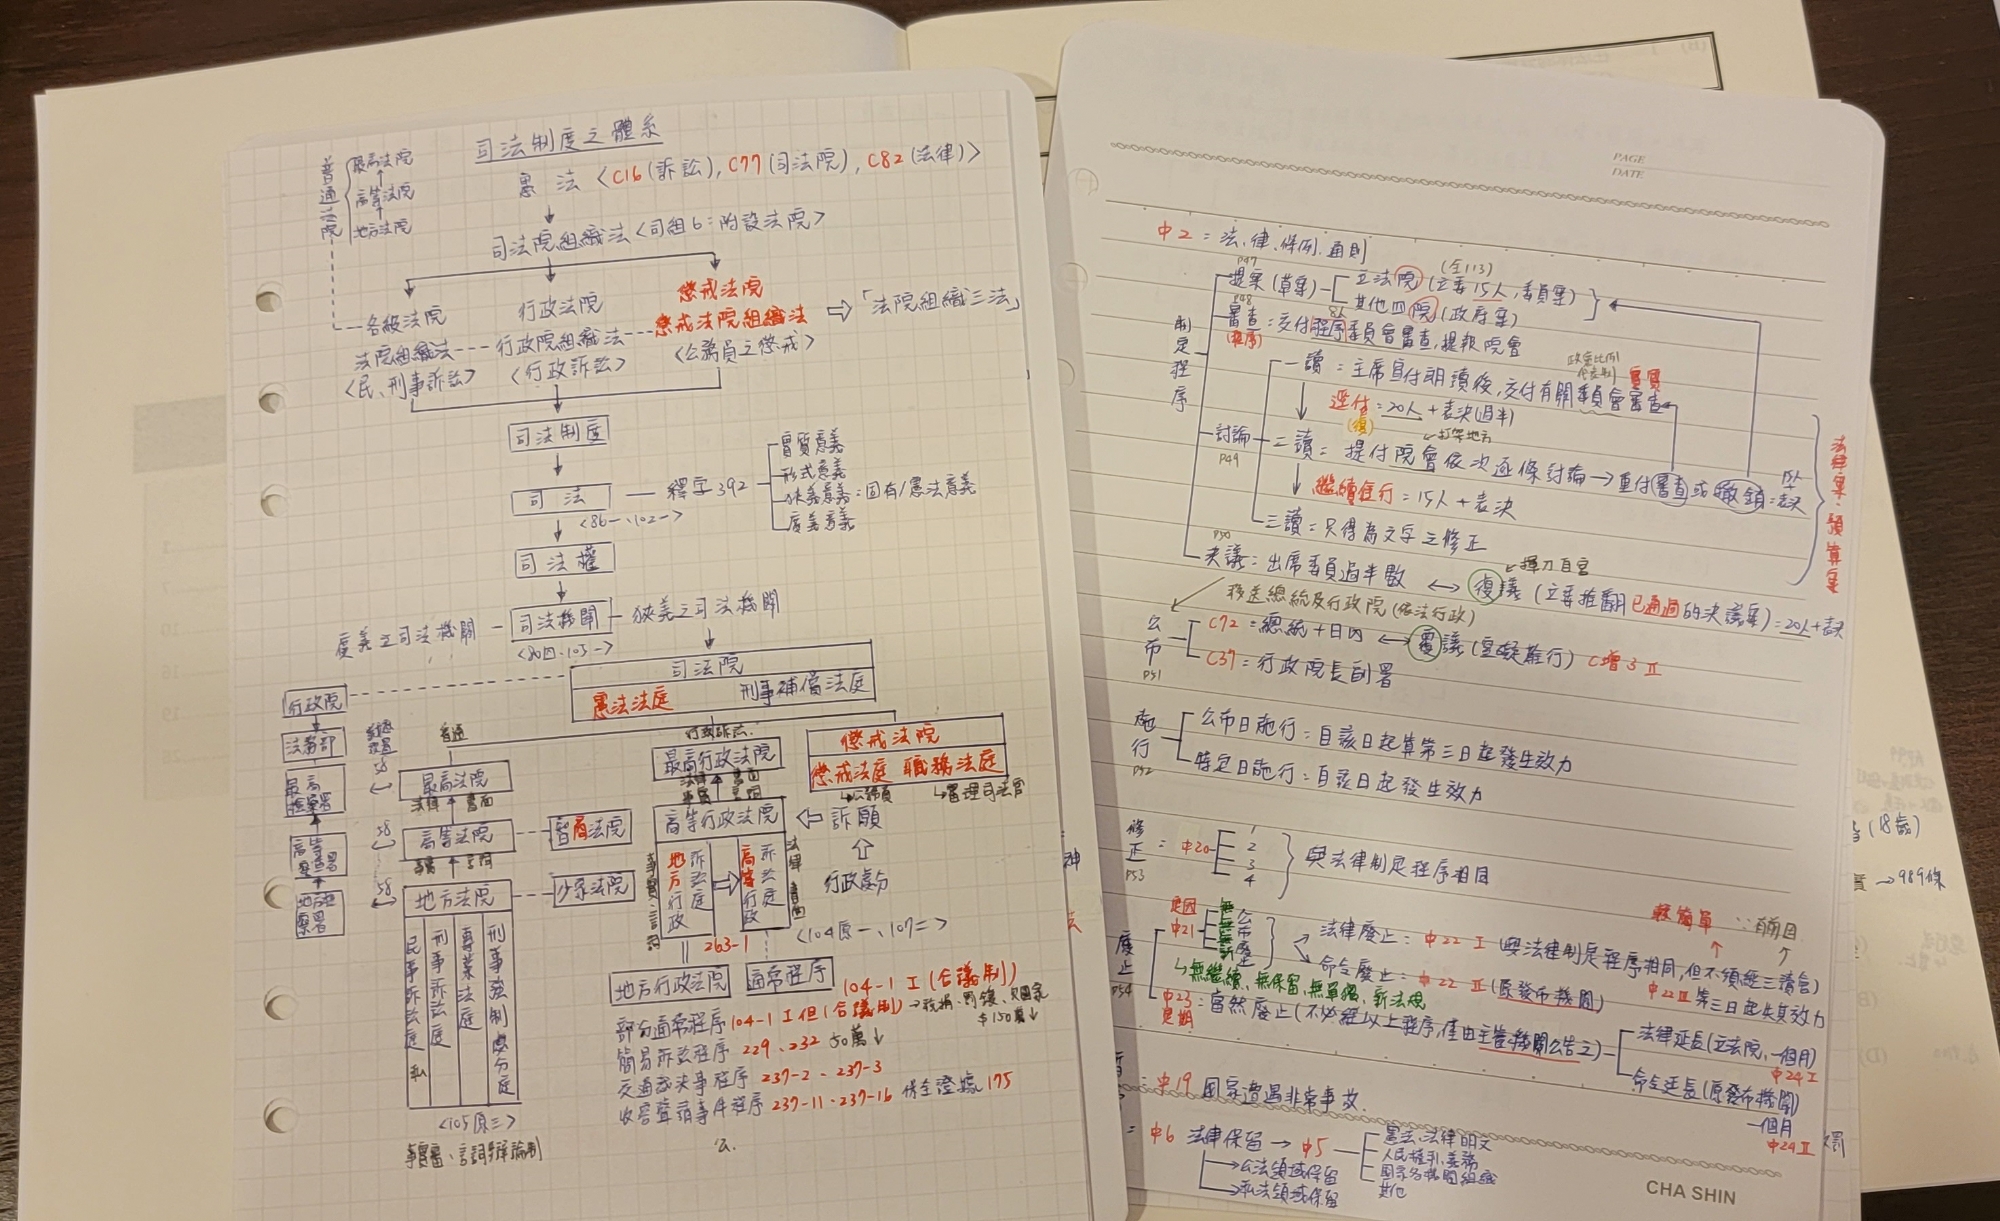 司法制度之體系
普通法院
最高法院
高等法院
地方法院
憲法〈C16(訴訟), C77(司法院), C82(法律)〉
司法院組織法〈司組6:附設法院〉
各級法院
行政法院
懲戒法院
法院組織法---行政院組織法---懲戒法院組織法 ⇨「法院組織三法」
〈民、刑事訴訟〉
〈行政訴訟〉
〈公務員之懲戒〉
司法制度
司法 — 釋字392
實質意義
形式意義
狹義意義:固有/憲法意義
廣義意義
〈86一、102一〉
司法權
廣義之司法機關 — 司法機關 — 狹義之司法機關
〈80四、103一〉
司法院
憲法法庭 刑事補償法庭
行政院
法務部
普通
行政訴訟
最高法院
最高行政法院
懲戒法院
懲戒法庭 職務法庭
↳公務員
↳審理司法官
法律 書面
58
高等法院
智商法院
高等行政法院 ⇦ 訴願
事實 言詞
58
地方法院
少家法院
行政處分
地方行政訴訟庭
高等行政訴訟庭
法律 書面
事實、言詞
〈104原一、107二〉
民事訴訟庭 私
刑事訴訟庭
專業法庭
刑事強制處分庭
〈105原三〉
事實審、言詞辯論制
263-1
地方行政法院
通常程序 104-1 I (合議制)
部分通常程序 104-1 I 但(合議制)
$150萬↓
簡易訴訟程序 229、232 50萬↓
交通裁決事程序 237-2、237-3
收容聲請事件程序 237-11、237-16 保全證據 175
中2=法、律、條例、通則
制定程序
P47
提案(草案)
(全113)
立法院(立委15人,委員案)
其他四院(政府案)
P48
審查:交付程序委員會審查,提報院會
(程序)
政黨比例
實質
一讀:主席宣付朗讀後,交付有關委員會審查
逕付=20人+表決(過半)
(復)
打架地方
討論
P49
二讀=提付院會依次逐條討論→重付審查或撤銷:15人+表決
繼續進行=15人+表決
三讀:只得為文字之修正
法律案、預算案
P50
決議:出席委員過半數 ↔ 復議(立委推翻已通過的決議案)=20人+表決
揮刀自宮
移送總統及行政院(依法行政)
公布
P51
C72=總統+日內 ↔ 覆議(窒礙難行) C增3 II
C37=行政院長副署
施行
P52
公布日施行:自該日起算第三日起發生效力
特定日施行:自該日起發生效力
修正
P53
=中20
1
2
3
4
與法律制定程序相同
廢止
P54
中21
法律廢止:中22 I (與法律制定程序相同,但不須經三讀會)
較簡單
命令廢止:中22 II (原發布機關)
中22III 第三日起失其效力
↳無繼續、無保留、無單獨、新法規
中23:當然廢止(不必經以上程序,僅由主管機關公告之)
定期
法律延長(立法院,一個月)
中24 I
命令延長(原發布機關)
一個月
中24 II
中19 國家遭遇非常事故
中6 法律保留 → 中5
憲法、法律明文
人民權利、義務
國家各機關組織
其他
→公法領域保留
→私法領域保留
PAGE
DATE
CHA SHIN
(18歲)
→989條